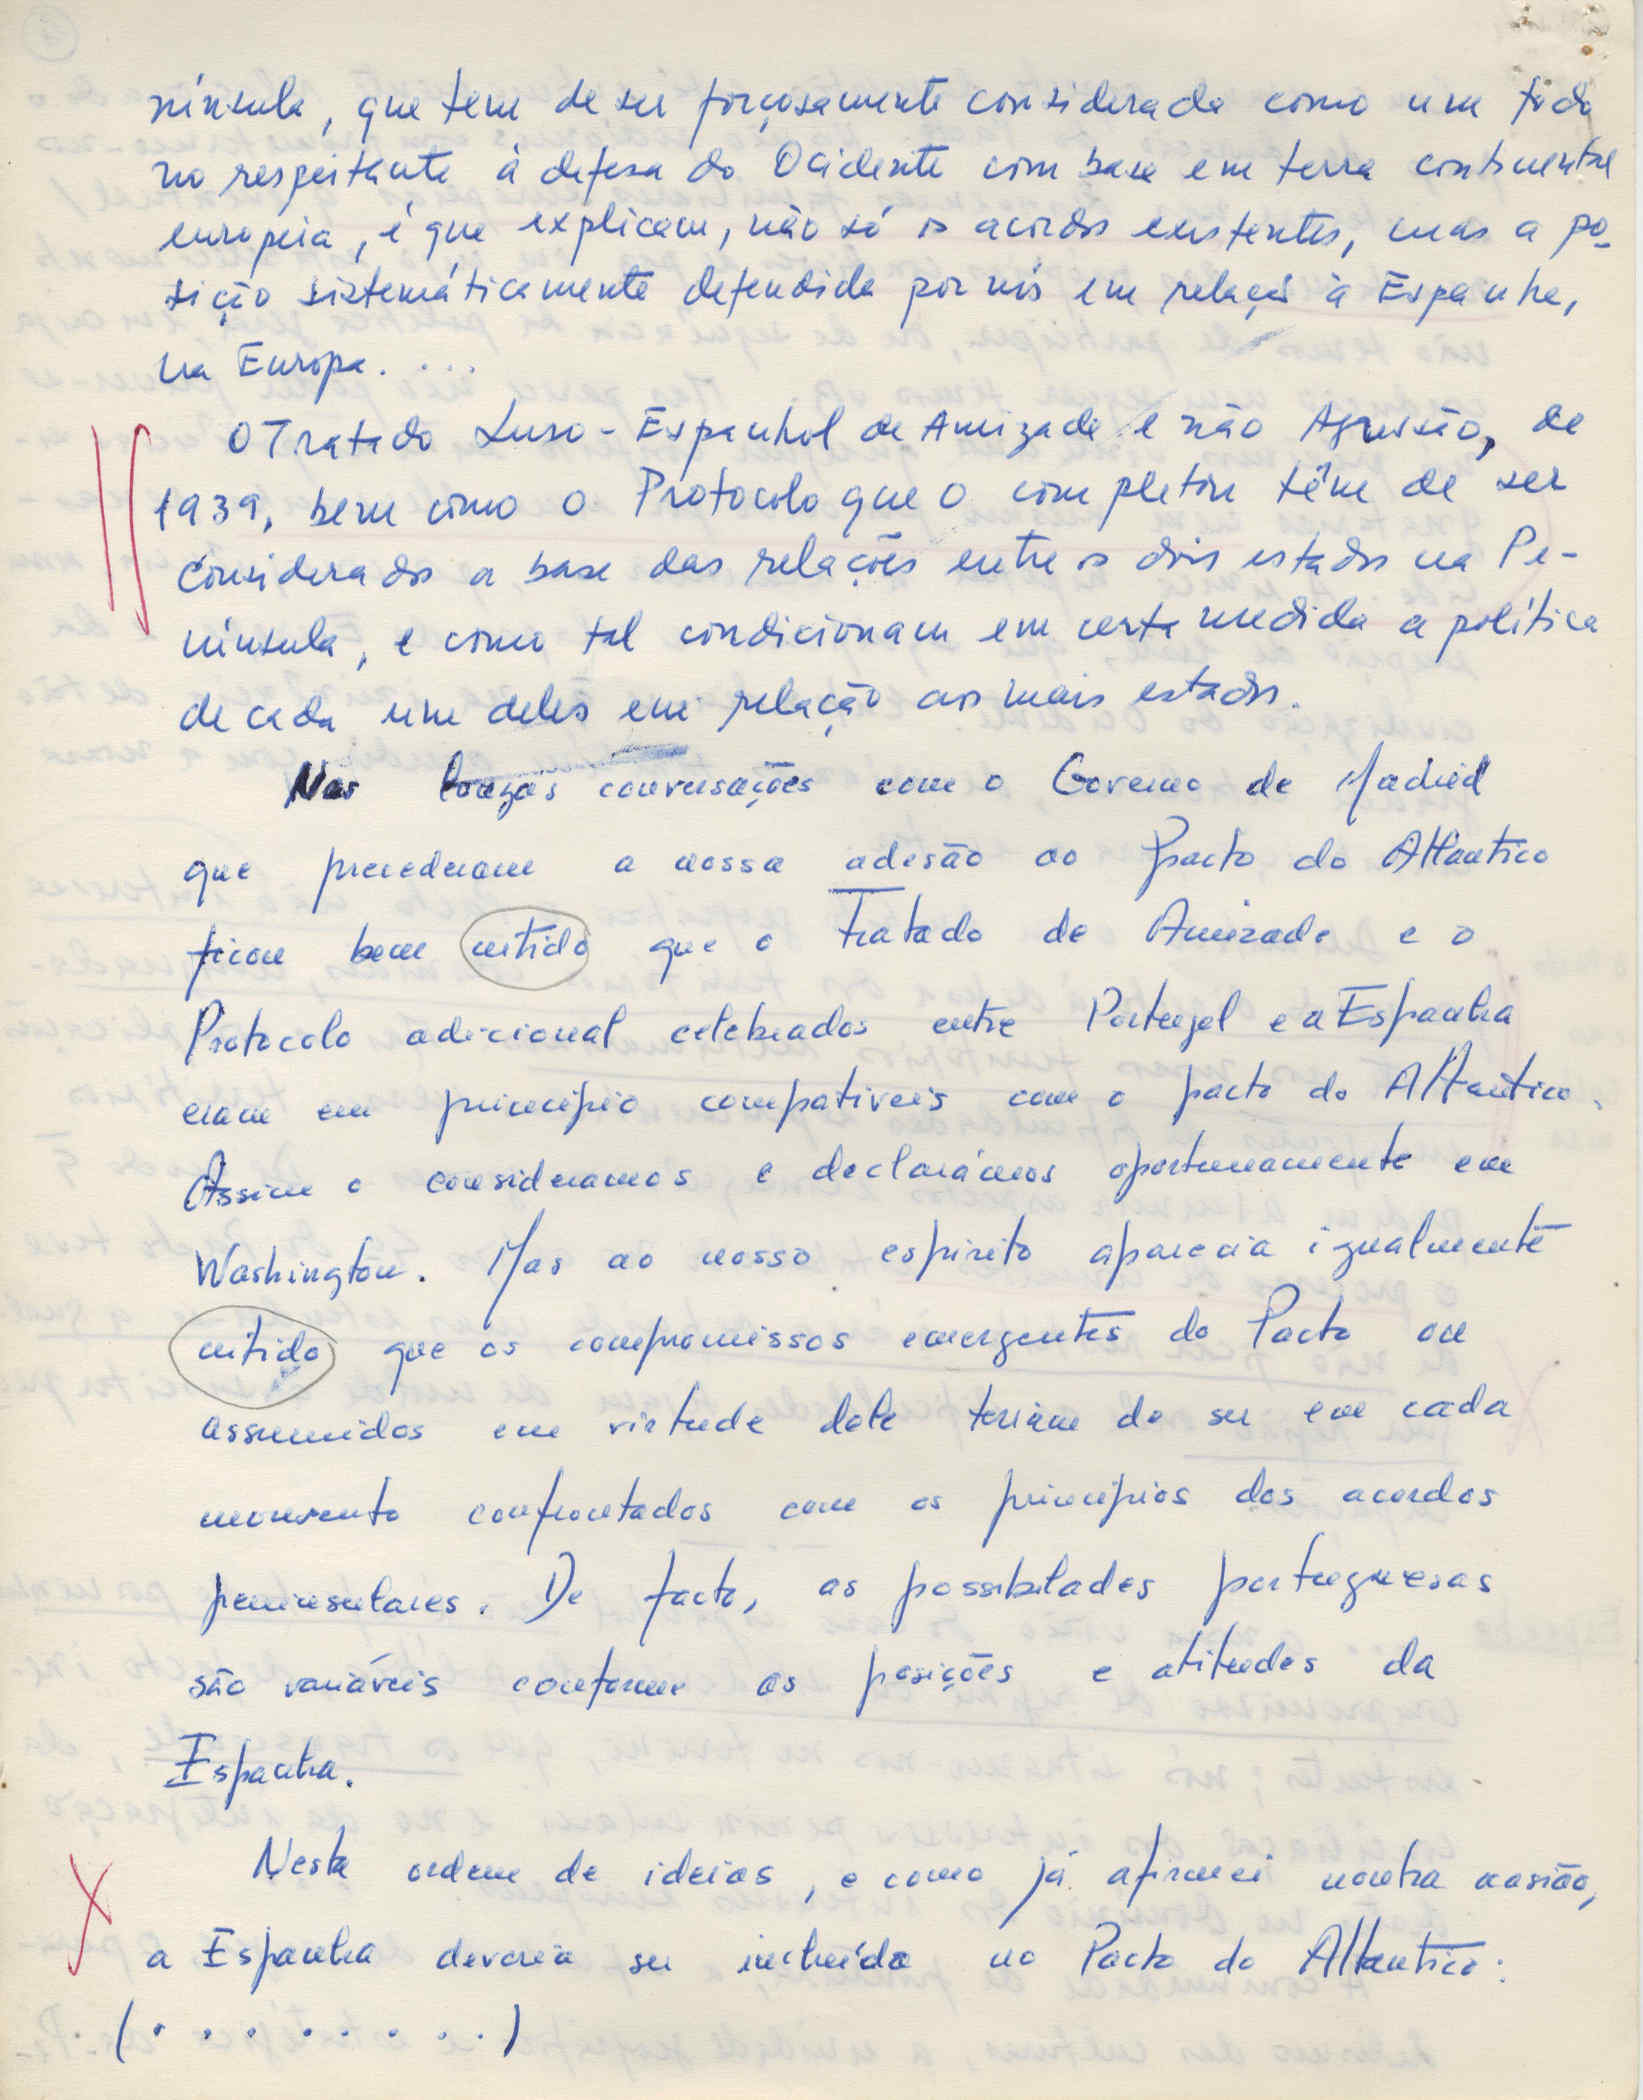 nínsula, que tem de ser forçosamente considerada como um todo
no respeitante à defesa do Ocidente com base em terra continental
europeia, é que explicam, não só os acordos existentes, mas a po-
sição sistemáticamente defendida por nós em relação à Espanha,
na Europa. ...
O Tratado Luso-Espanhol de Amizade e não Agressão, de
1939, bem como o Protocolo que o completou têm de ser
considerados a base das relações entre os dois estados na Pe-
nínsula, e como tal condicionam em certa medida a política
de cada um deles em relação aos mais estados.
Nas longas conversações com o Governo de Madrid
que precederam a nossa adesão ao Pacto do Atlantico
ficou bem nítido que o Tratado de Amizade e o
Protocolo adicional celebrados entre Portugal e a Espanha
eram em principio compativeis com o pacto do Atlantico.
Assim o consideramos e declarámos oportunamente em
Washington. Mas ao nosso espirito aparecia igualmente
nítido que os compromissos emergentes do Pacto ou
assumidos em virtude dele teriam de ser em cada
momento confrontados com os principios dos acordos
peninsulares. De facto, as possibilades portuguesas
são variáveis conforme as posições e atitudes da
Espanha.
Nesta ordem de ideias, e como já afirmei noutra ocasião,
a Espanha deveria ser incluída no Pacto do Atlantico.
(. . . . . . . . .)